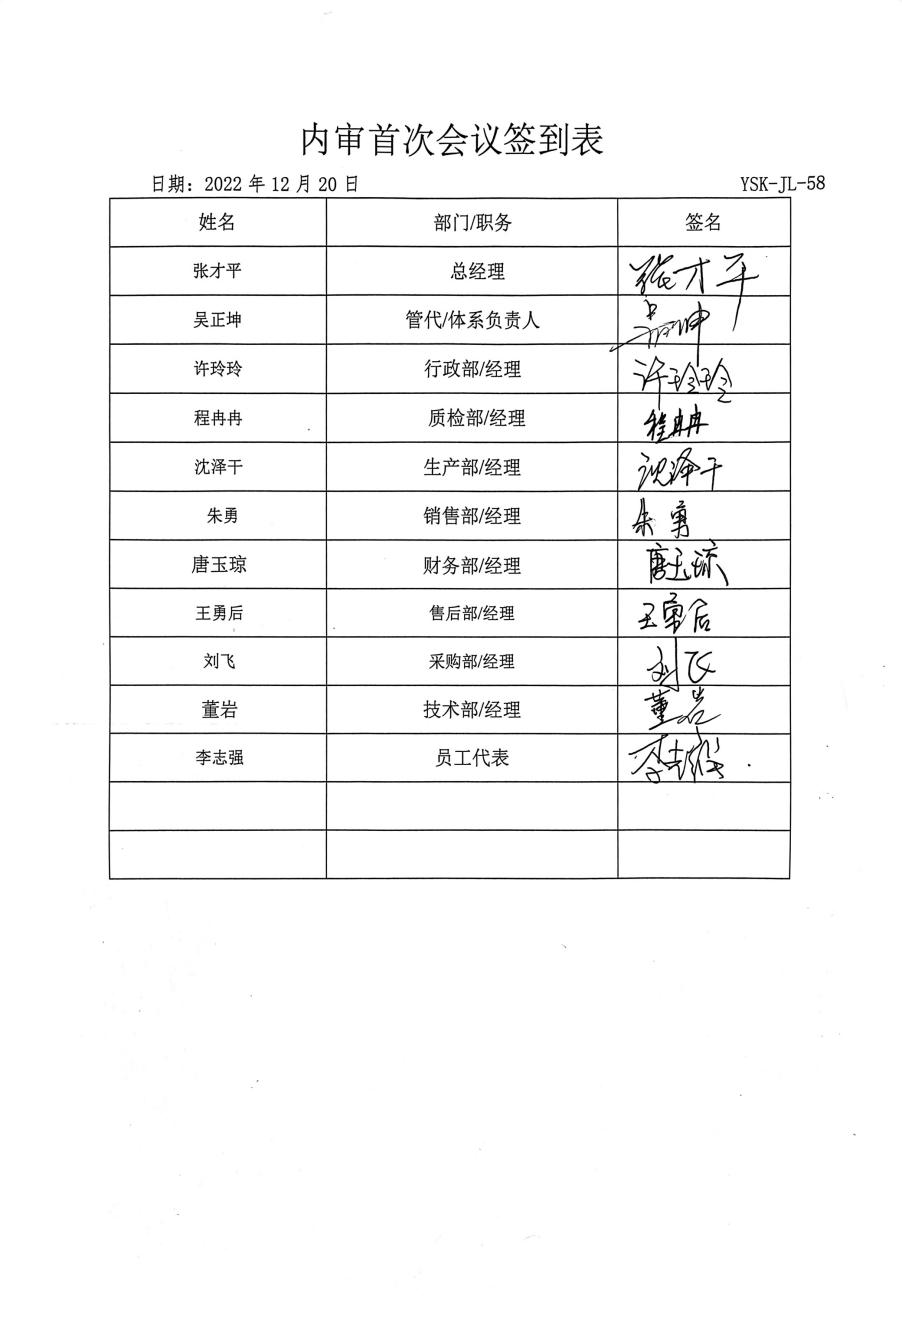 内审首次会议签到表
日期：2022 年 12 月 20 日 YSK-JL-58
姓名 部门/职务 签名
张才平 总经理 张才平
吴正坤 管代/体系负责人 吴正坤
许玲玲 行政部/经理 许玲玲
程冉冉 质检部/经理 程冉冉
沈泽干 生产部/经理 沈泽干
朱勇 销售部/经理 朱勇
唐玉琼 财务部/经理 唐玉琼
王勇后 售后部/经理 王勇后
刘飞 采购部/经理 刘飞
董岩 技术部/经理 董岩
李志强 员工代表 李志强